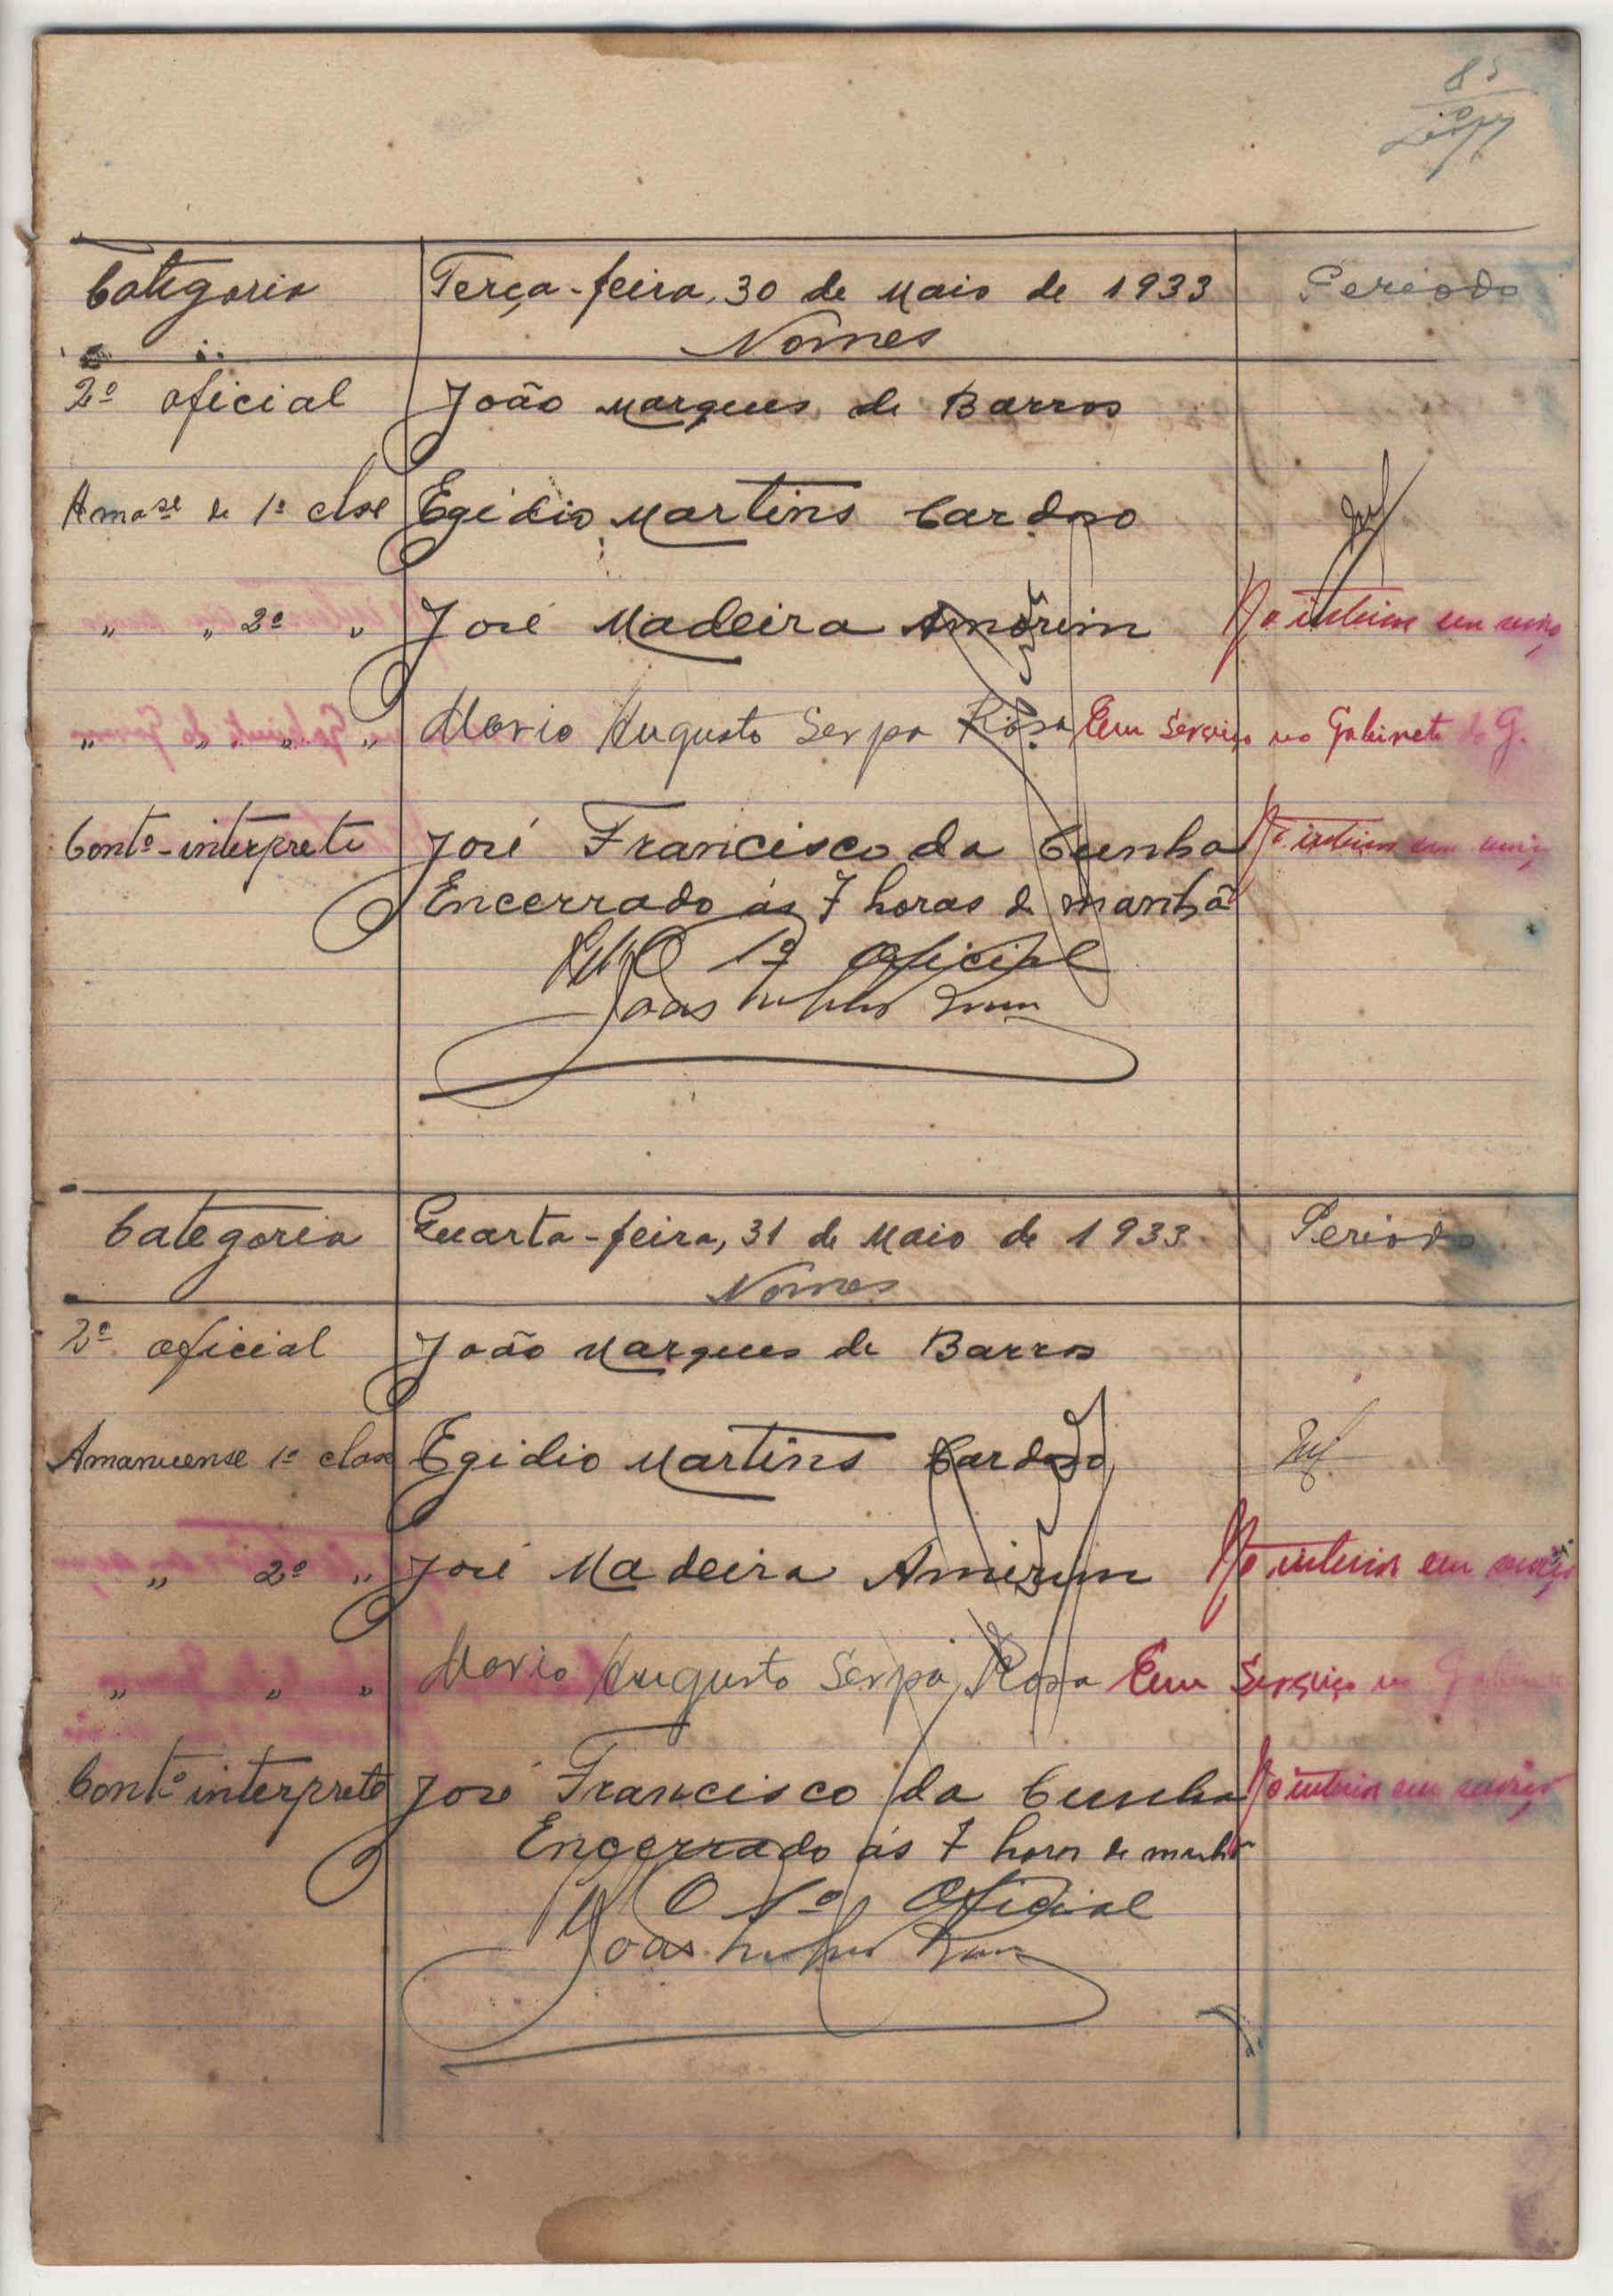 85
Categoria Terça-feira, 30 de Maio de 1933 Periodo
Nomes
2º oficial João Marques de Barros
Amase de 1ª clse Egidio Martins Cardoso
" " 2ª " José Madeira Amorim No interior em serviço
" " " " Mario Augusto Serpa Rosa Em Serviço no Gabinete do G.
Conto-interprete José Francisco da Cunha No interior em serviço
Encerrado ás 7 horas da manhã
O 1º Oficial
Categoria Quarta-feira, 31 de Maio de 1933 Periodo
Nomes
2º oficial João Marques de Barros
Amanuense 1ª clase Egidio Martins Cardoso
" 2ª " José Madeira Amorim No interior em serviço
" " " Mario Augusto Serpa Rosa Em Serviço no
Conto interprete José Francisco da Cunha No interior em serviço
Encerrado ás 7 horas da manhã
O 1º Oficial